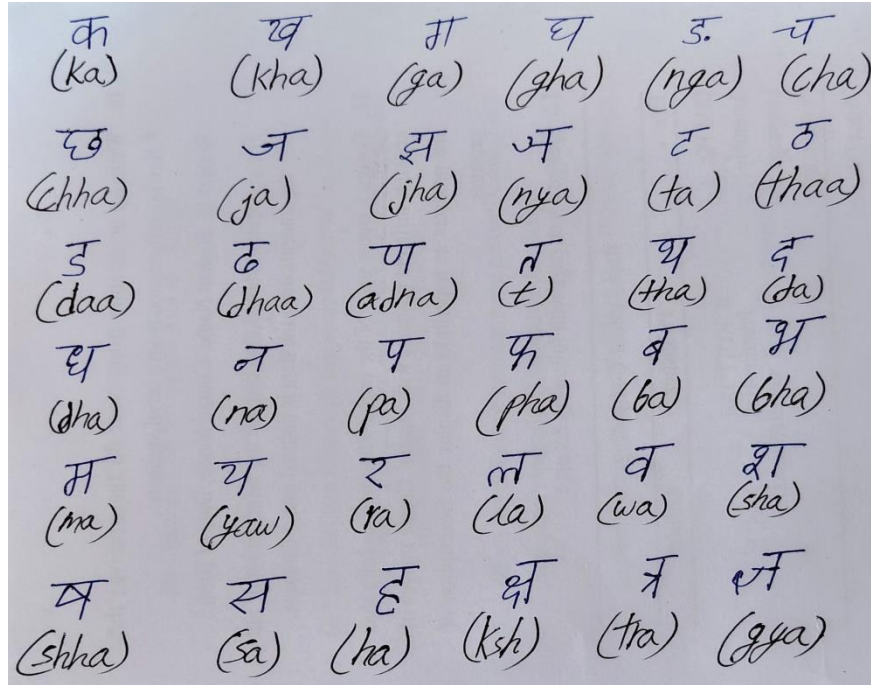 क ख ग घ ङ च
(ka) (kha) (ga) (gha) (nga) (cha)
छ ज झ ञ ट ठ
(chha) (ja) (jha) (nya) (ta) (thaa)
ड ढ ण त थ द
(daa) (dhaa) (adna) (t) (tha) (da)
ध न प फ ब भ
(dha) (na) (pa) (pha) (ba) (bha)
म य र ल व श
(ma) (yaw) (ra) (la) (wa) (sha)
ष स ह क्ष त्र ज्ञ
(shha) (sa) (ha) (ksh) (tra) (gya)